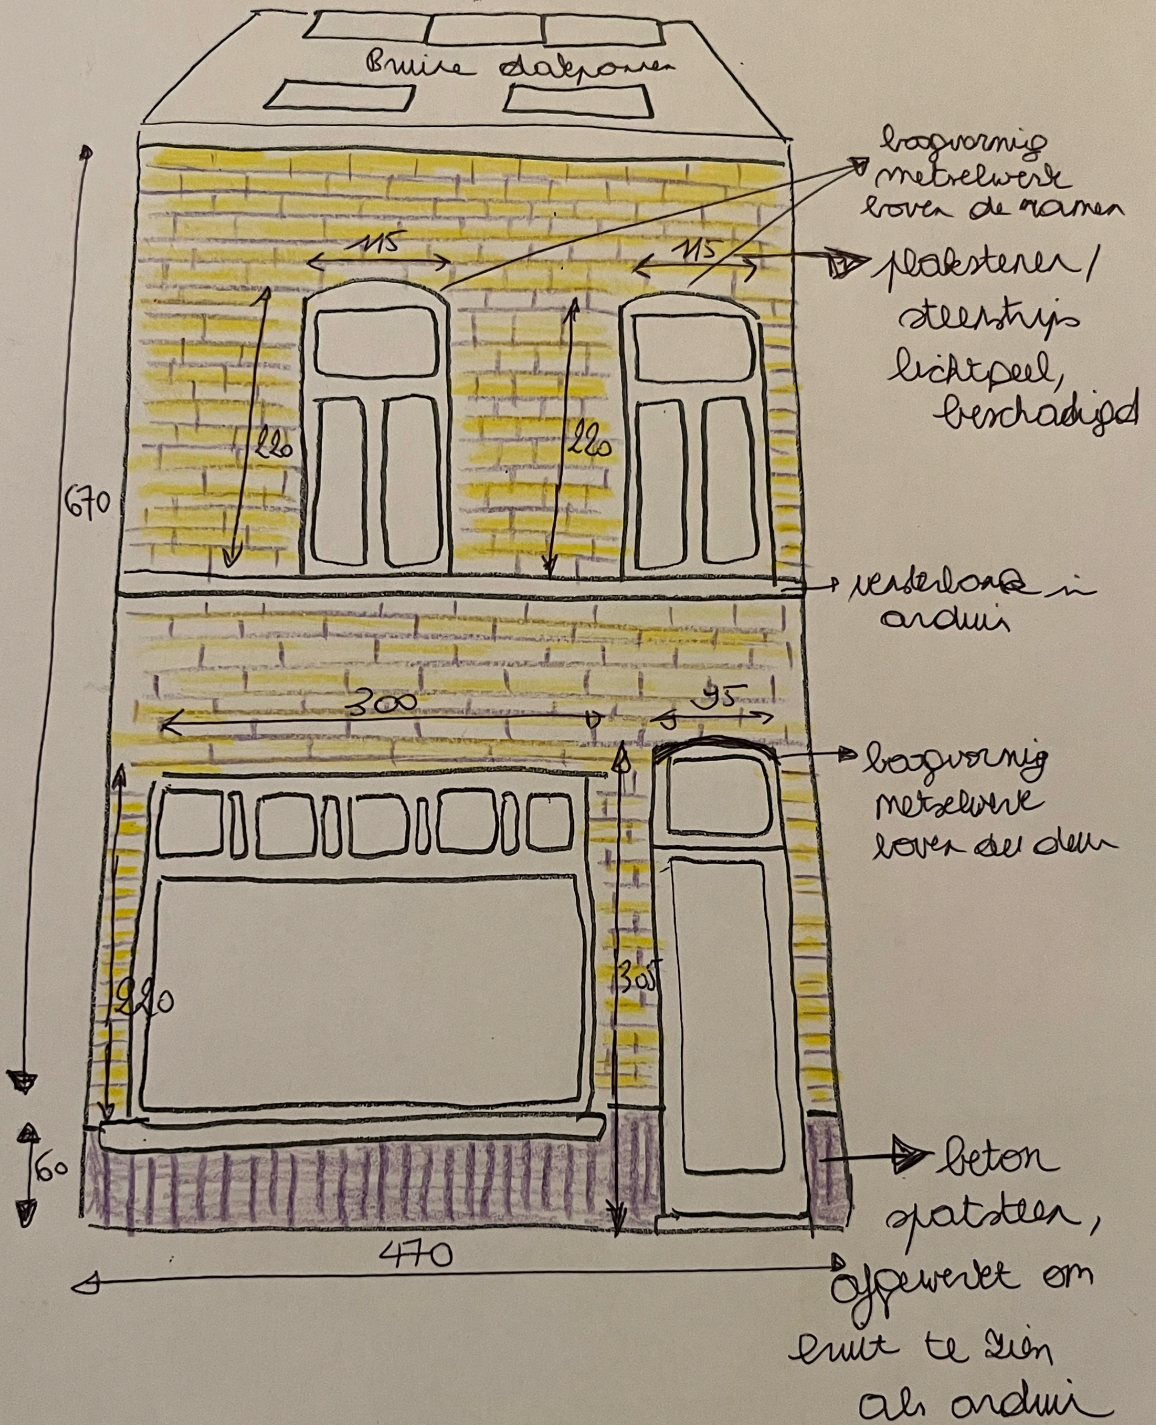 Bruine dakpannen
boogvormig
metselwerk
boven de ramen
115
115
plakstenen /
steenstrips
lichtgeel,
beschadigd
220
220
670
vensterbank in
arduin
300
95
boogvormig
metselwerk
boven de deur
220
305
60
beton
spatsteen,
afgewerkt om
eruit te zien
als arduin
470